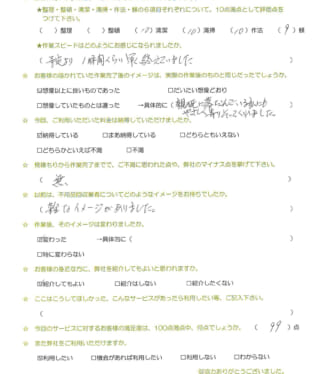 ★整理・整頓・清潔・清掃・作法・躾の6項目それぞれについて、10点満点として評価点をつけて下さい。
( )整理 ( )整頓 (10)清潔 (10)清掃 (10)作法 (9)躾
★作業スピードはどのようにお感じになられましたか。
( 予定より 1時間くらい早く終えていました )
☆ お客様の描かれていた作業完了後のイメージは、実際の作業後のものと同じだったでしょうか。
☑想像以上に良いものであった □だいたい想像どおり
□想像していたものとは違った →具体的に( )
☆ 今回、ご利用いただいた料金は納得していただけましたか。
☑納得している □まあ納得している □どちらともいえない
□どちらかといえば不満 □不満
☆ 見積もりから作業完了までで、ご不満に思われた点や、弊社のマイナス点を挙げて下さい。
( 無 )
☆ 以前は、不用品回収業者についてどのようなイメージをお持ちでしたか。
( 雑なイメージがありました。 )
☆ 作業後、そのイメージは変わりましたか。
☑変わった →具体的に( )
□特に変わらない
☆ お客様の身近な方に、弊社を紹介してもよいと思われますか。
☑紹介してもよい □紹介はしない □紹介したくない
☆ ここはこうしてほしかった、こんなサービスがあったら利用したい等、ご記入下さい。
( )
☆ 今回のサービスに対するお客様の満足度は、100点満点中、何点でしょうか。 ( 99 )点
☆ また弊社をご利用いただけますか。
☑利用したい □機会があれば利用したい □利用しない □わからない
ご協力ありがとうございました。